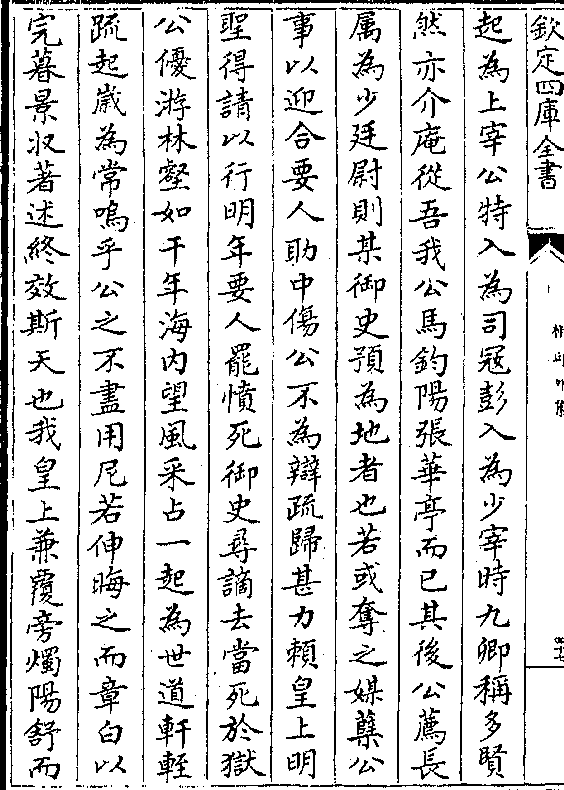 欽定四庫全書
起為上宰公特入為司冦彭入為少宰時九卿稱多賢
然亦介庵從吾我公馬鈞陽張華亭而已其後公薦長
厲為少廷尉則某御史預為地者也若或奪之媒櫱公
事以迎合要人助中傷公不為辯疏歸甚力頼皇上明
聖得請以行明年要人罷憤死御史尋謫去當死於獄
公優游林壑如干年海内望風采占一起為世道軒輊
疏起嵗為常嗚乎公之不盡用尼若伸晦之而章白以
完暮景収著述終效斯天也我皇上兼覆旁燭陽舒而